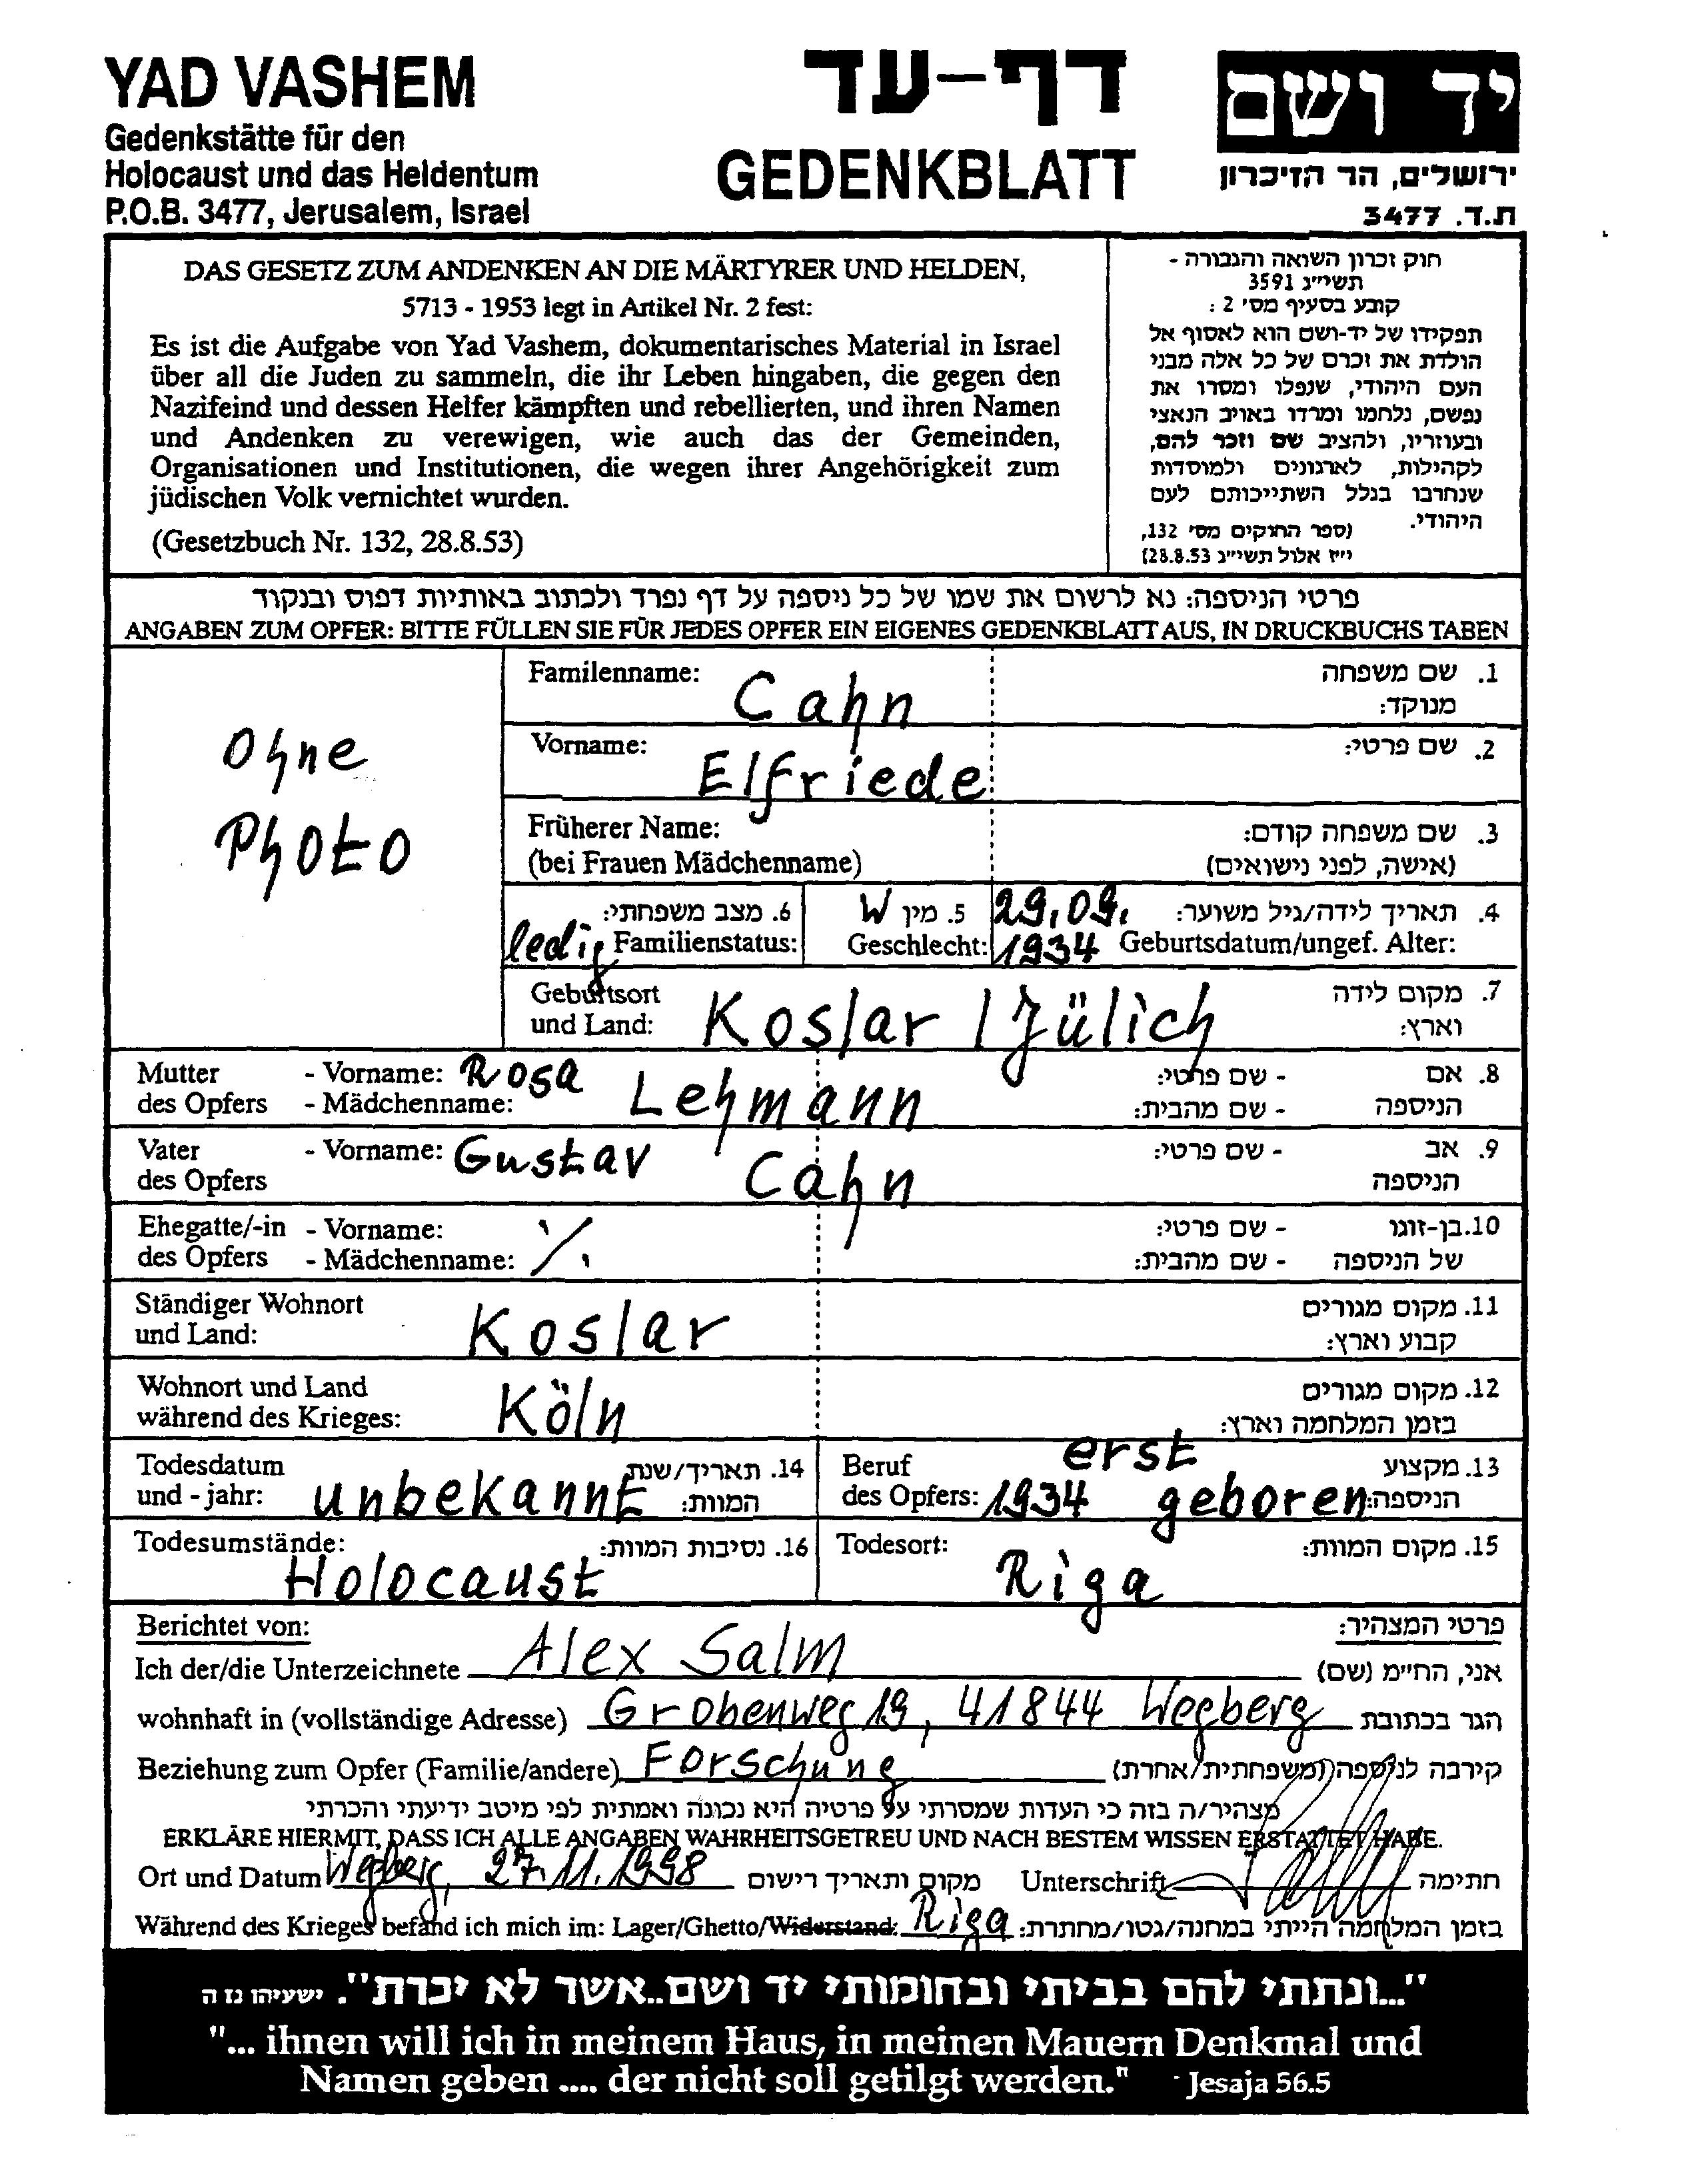 YAD VASHEM
Gedenkstätte für den
Holocaust und das Heldentum
P.O.B. 3477, Jerusalem, Israel
דף-עד
GEDENKBLATT
יד ושם
ירושלים, הר הזיכרון
ת.ד. 3477
DAS GESETZ ZUM ANDENKEN AN DIE MÄRTYRER UND HELDEN,
5713 - 1953 legt in Artikel Nr. 2 fest:
Es ist die Aufgabe von Yad Vashem, dokumentarisches Material in Israel
über all die Juden zu sammeln, die ihr Leben hingaben, die gegen den
Nazifeind und dessen Helfer kämpften und rebellierten, und ihren Namen
und Andenken zu verewigen, wie auch das der Gemeinden,
Organisationen und Institutionen, die wegen ihrer Angehörigkeit zum
jüdischen Volk vernichtet wurden.
(Gesetzbuch Nr. 132, 28.8.53)
חוק זכרון השואה והגבורה -
תשי״ג 3591
קובע בסעיף מס׳ 2 :
תפקידו של יד-ושם הוא לאסוף אל
הולדת את זכרם של כל אלה מבני
העם היהודי, שנפלו ומסרו את
נפשם, נלחמו ומרדו באויב הנאצי
ובעוזריו, ולהציב שם וזכר להם,
לקהילות, לארגונים ולמוסדות
שנחרבו בגלל השתייכותם לעם
היהודי.
(ספר החוקים מס׳ 132,
י״ז אלול תשי״ג 28.8.53)
פרטי הניספה: נא לרשום את שמו של כל ניספה על דף נפרד ולכתוב באותיות דפוס ובנקוד
ANGABEN ZUM OPFER: BITTE FÜLLEN SIE FÜR JEDES OPFER EIN EIGENES GEDENKBLATT AUS, IN DRUCKBUCHS TABEN
Ohne
Photo
Familenname: Cahn 1. שם משפחה
מנוקד:
Vorname: Elfriede 2. שם פרטי:
Früherer Name: 3. שם משפחה קודם:
(bei Frauen Mädchenname) (אישה, לפני נישואים)
6. מצב משפחתי: 5. מין W 29.09. 4. תאריך לידה/גיל משוער:
ledig Familienstatus: Geschlecht: 1934 Geburtsdatum/ungef. Alter:
Geburtsort 7. מקום לידה
und Land: Koslar / Jülich וארץ:
Mutter - Vorname: Rosa - שם פרטי: 8. אם
des Opfers - Mädchenname: Lehmann - שם מהבית: הניספה
Vater - Vorname: Gustav Cahn - שם פרטי: 9. אב
des Opfers הניספה
Ehegatte/-in - Vorname: ./. - שם פרטי: 10. בן-זוגו
des Opfers - Mädchenname: - שם מהבית: של הניספה
Ständiger Wohnort 11. מקום מגורים
und Land: Koslar קבוע וארץ:
Wohnort und Land 12. מקום מגורים
während des Krieges: Köln בזמן המלחמה וארץ:
Todesdatum 14. תאריך/שנת Beruf erst 13. מקצוע
und - jahr: unbekannt המוות: des Opfers: 1934 geboren הניספה:
Todesumstände: Holocaust 16. נסיבות המוות: Todesort: Riga 15. מקום המוות:
Berichtet von: פרטי המצהיר:
Ich der/die Unterzeichnete Alex Salm אני, הח״מ (שם)
wohnhaft in (vollständige Adresse) Grobenweg 19, 41844 Wegberg הגר בכתובת
Beziehung zum Opfer (Familie/andere) Forschung קירבה לניספה (משפחתית/אחרת)
מצהיר/ה בזה כי העדות שמסרתי על פרטיה היא נכונה ואמתית לפי מיטב ידיעתי והכרתי
ERKLÄRE HIERMIT, DASS ICH ALLE ANGABEN WAHRHEITSGETREU UND NACH BESTEM WISSEN ERSTATTET HABE.
Ort und Datum Wegberg, 27.11.1998 מקום ותאריך רישום Unterschrift חתימה
Während des Krieges befand ich mich im: Lager/Ghetto/Widerstand: Riga בזמן המלחמה הייתי במחנה/גטו/מחתרת:
"...ונתתי להם בביתי ובחומותי יד ושם..אשר לא יכרת". ישעיהו נו ה
"... ihnen will ich in meinem Haus, in meinen Mauern Denkmal und
Namen geben .... der nicht soll getilgt werden." - Jesaja 56.5